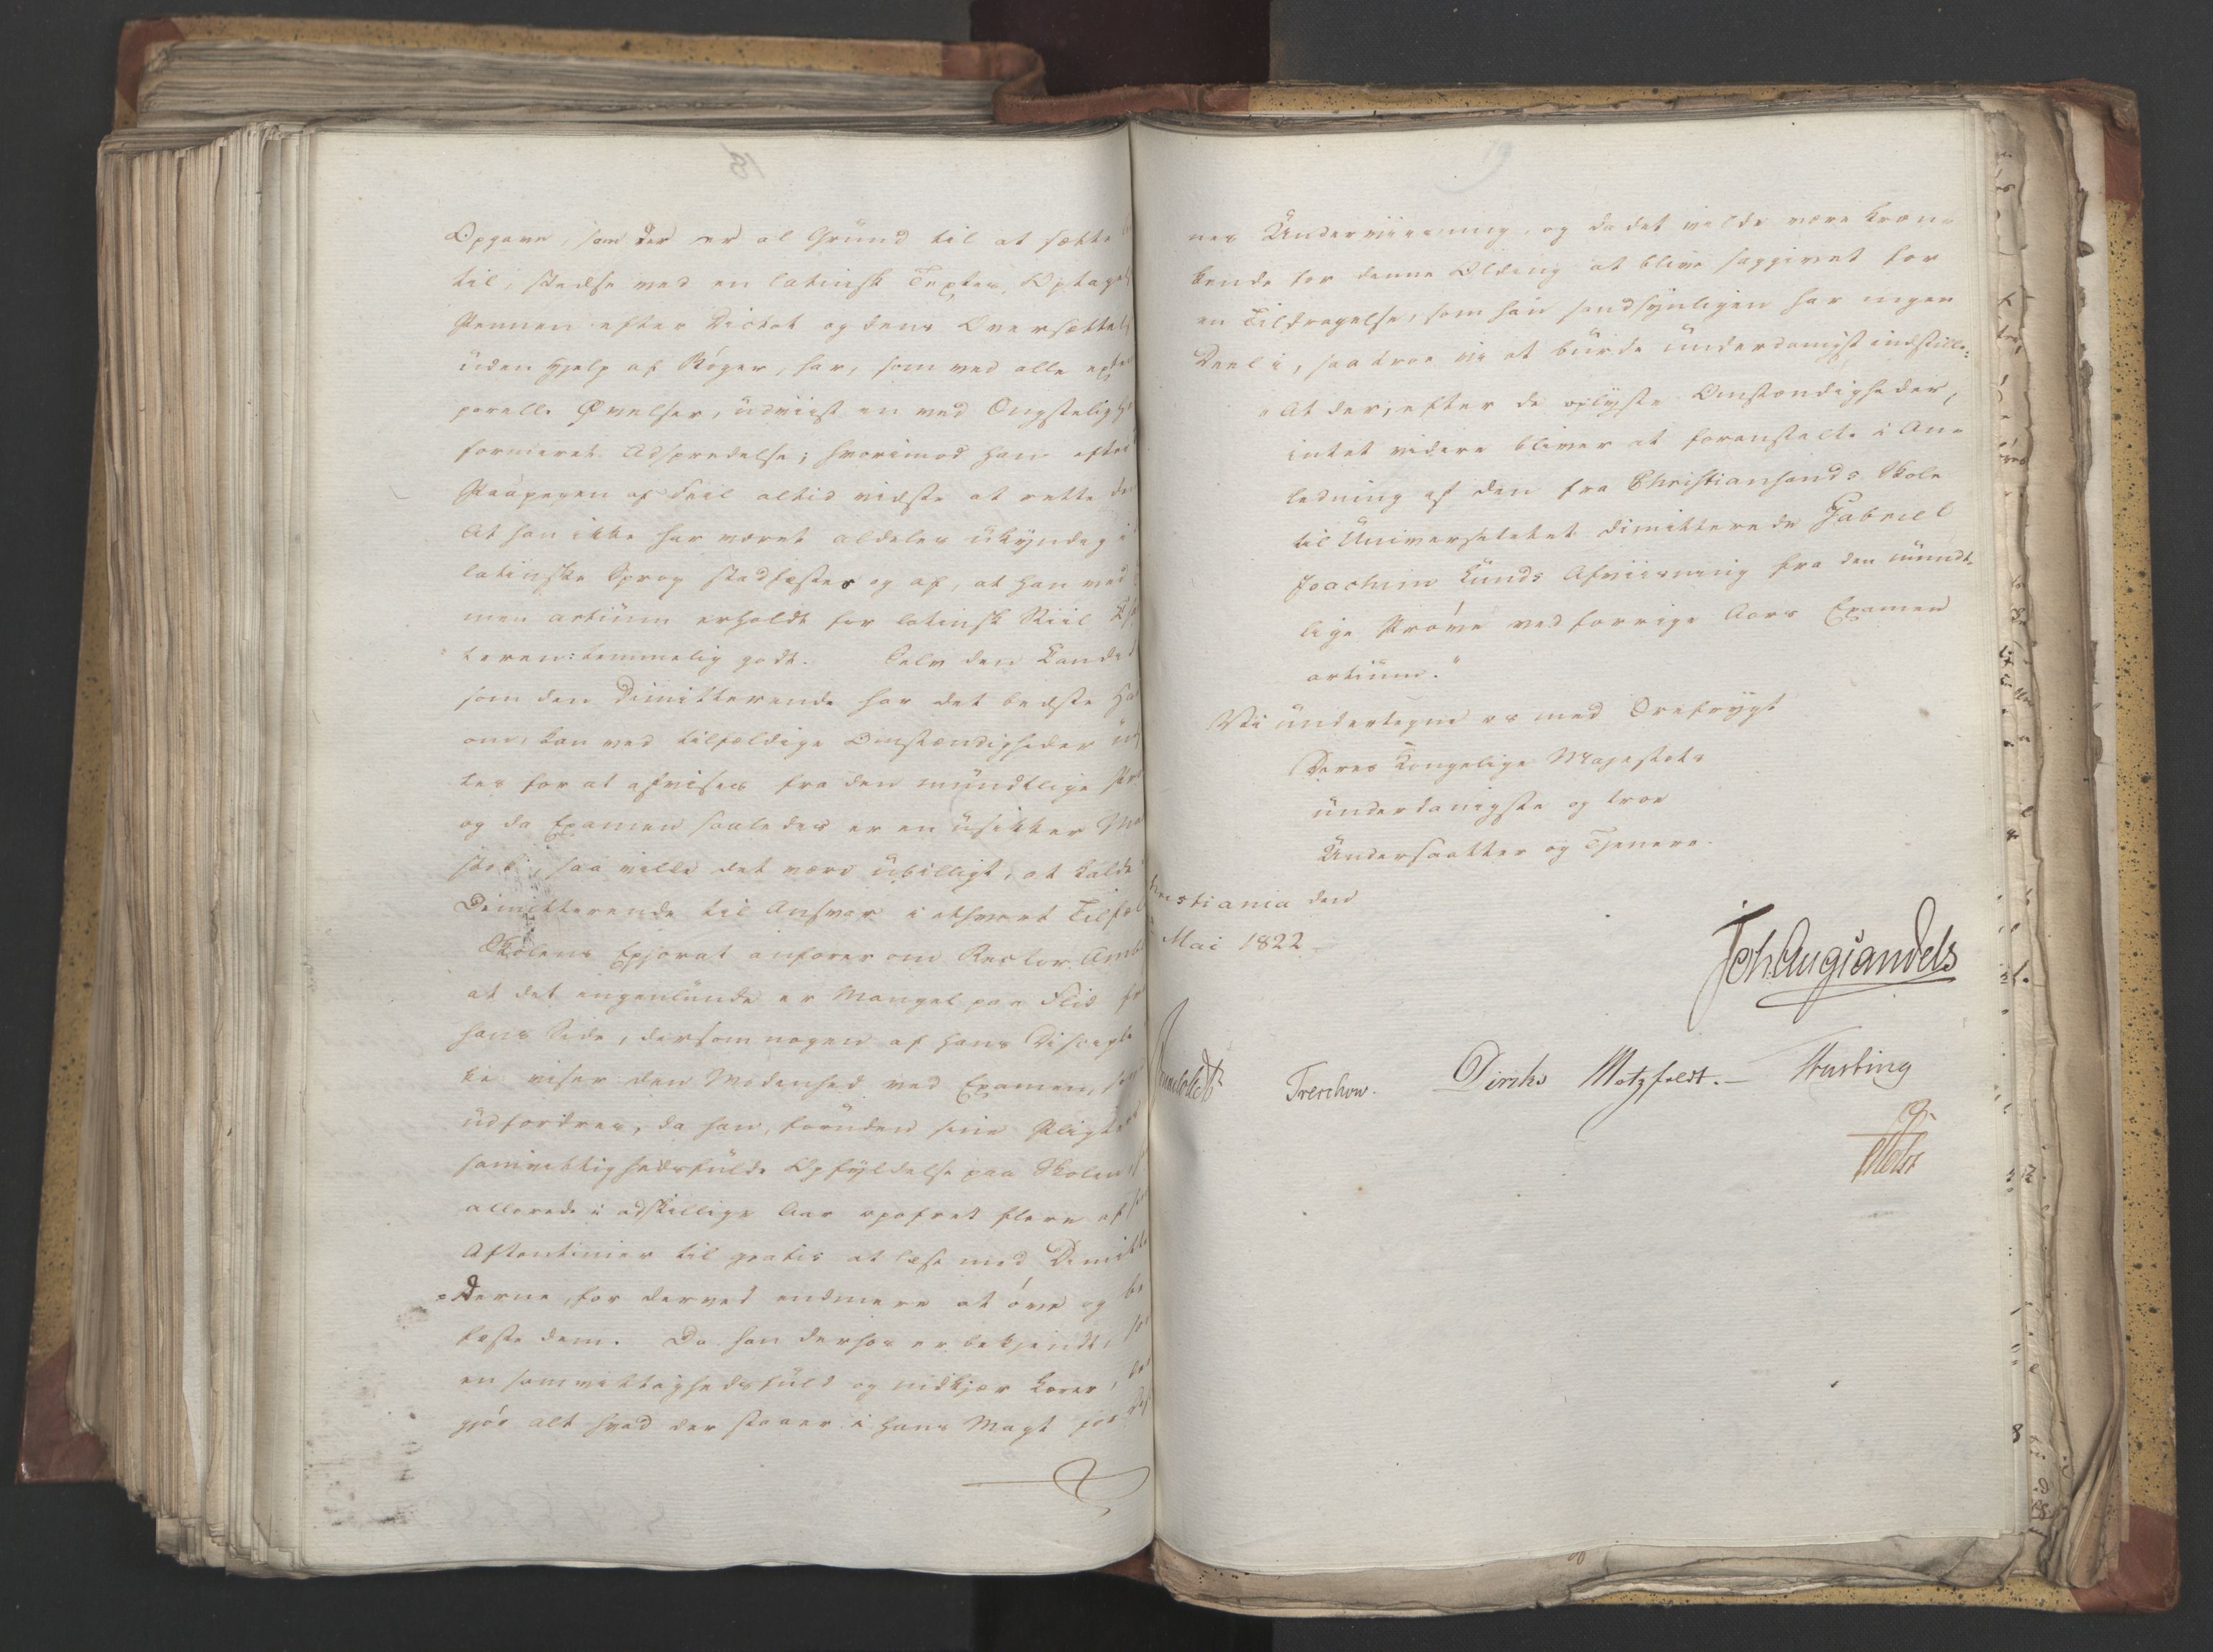 Opgave, som der er al Grund til at sætte
til, stedse ved en latinsk Textes Optagel
Pennen efter Dictat og dens Oversættels
uden Hjelp af Bøger, har, som ved alle extem
porelle Øvelser, udviist en ved Ængsteligh
formeret Adspredelse; hvorimod han efter
Paapegen af Feil altid vidste at rette de
At han ikke har været aldeles ukyndig i
latinske Sprog stadfæstes og af, at han ved
men artium erholdt for latinsk Stiil
teren: temmelig godt. Selv den Candid
som den Dimitterende har det bedste Ha
om, kan ved tilfældige Omstændigheder ud
tes for at afvises fra den mundtlige Prø
og da Examen saaledes er en usikker Ma
stok, saa vilde det være ubilligt, at kalde
Dimitterende til Ansvar i ethvert Tilfæl
Skolens Ephorat anfører om Rector
at det ingenlunde er Mangel paa Flid fra
hans Side, dersom nogen af hans Disciple
ke viser den Modenhed ved Examen, som
udfordres, da han, foruden sine Pligter
samvittighedsfulde Opfyldelse paa Skolen
allerede i adskillige Aar opofret flere af
Aftentimer til gratis at læse med Dimitte
derne, for derved endmere at øve og be
fæste dem. Da han derhos er bekjendt, som
en samvittighedsfuld og nidkjær Lærer, der
gjør alt hvad der staaer i hans Magt for
nes Underviisning, og da det vilde være kræn-
kende for denne Olding at blive saggivet for
en Tildragelse, som han sandsynligen har ingen
Deel i, saa troe vi at burde underdanigst indstille:
"At der, efter de oplyste Omstændigheder,
intet videre bliver at foranstalte i An-
ledning af den fra Christiansands Skole
til Universitetet dimitterede Gabriel
Joachim Lunds Afviisning fra den mundt-
lige Prøve ved forrige Aars Examen
artium."
Vi undertegne os med Ærefrygt
Deres Kongelige Majestæts
underdanigste og troe
Undersaatter og Tjenere.
hristiania den
Mai 1822
Joh. Aug Sandels
Treschow. Diriks Motzfeldt. –
Holst